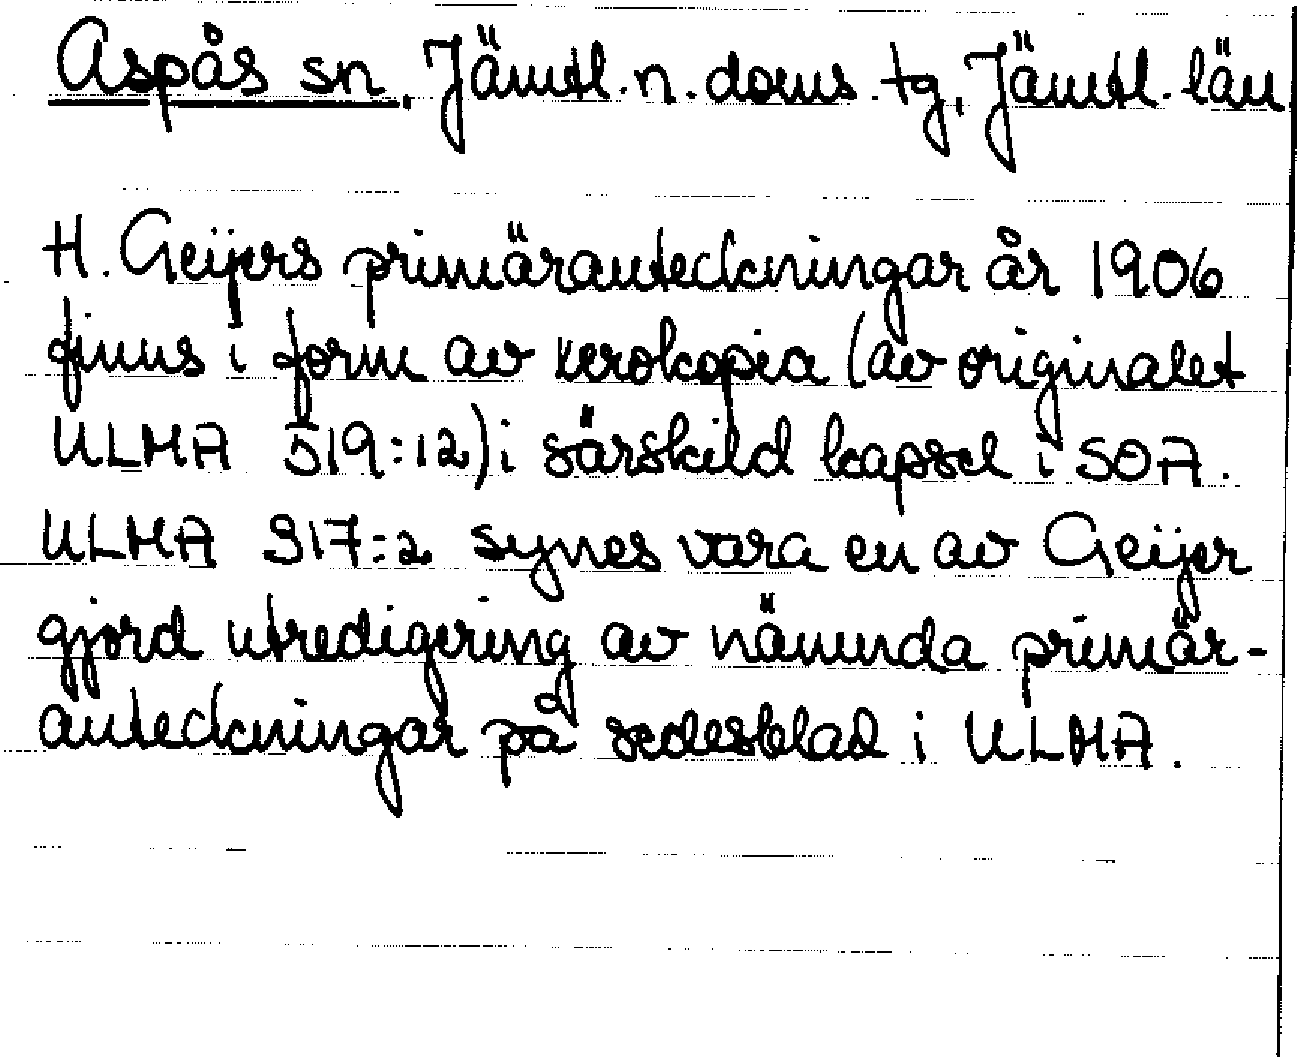 Aspås sn, Jämtl. n. doms. tg, Jämtl. län
H. Geijers primäranteckningar år 1906
finns i form av xerokopia (av originalet
ULMA 519:12) i särskild kapsel i SOA.
ULMA 317:2 synes vara en av Geijer
gjord utredigering av nämnda primär-
anteckningar på sedesblad i ULMA.